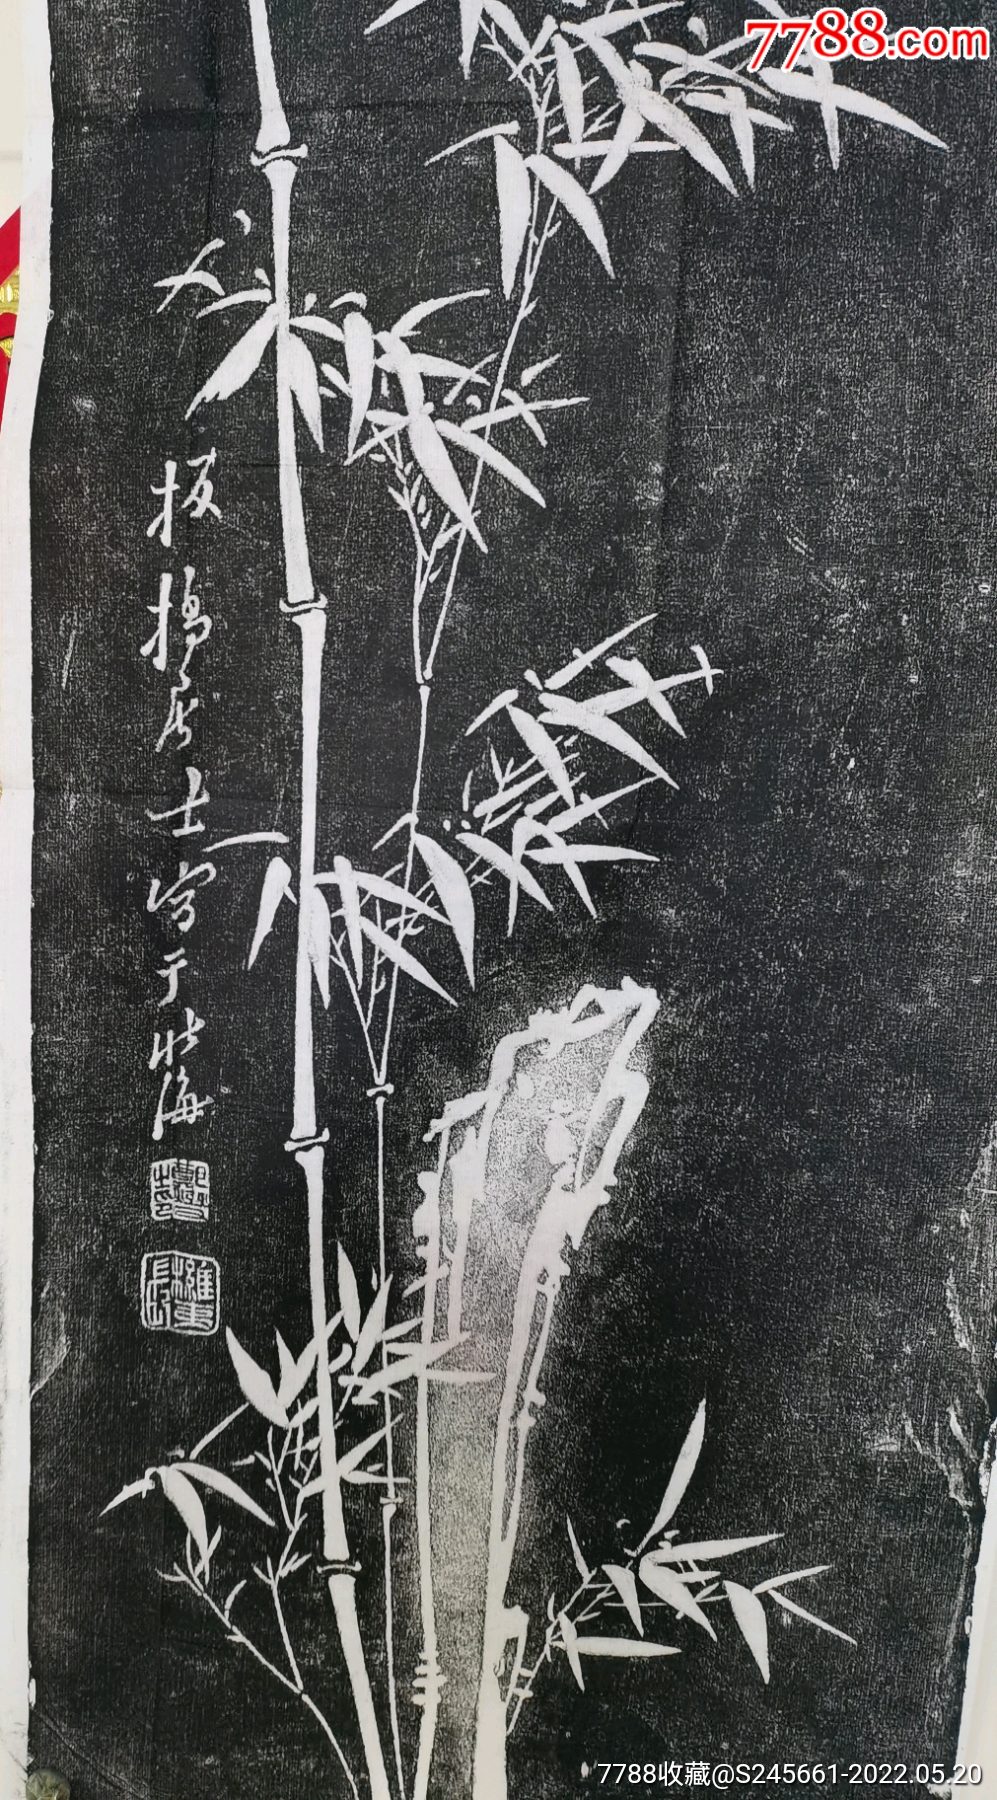 7788.com
板橋居士写于北海
7788收藏@S245661-2022.05.20